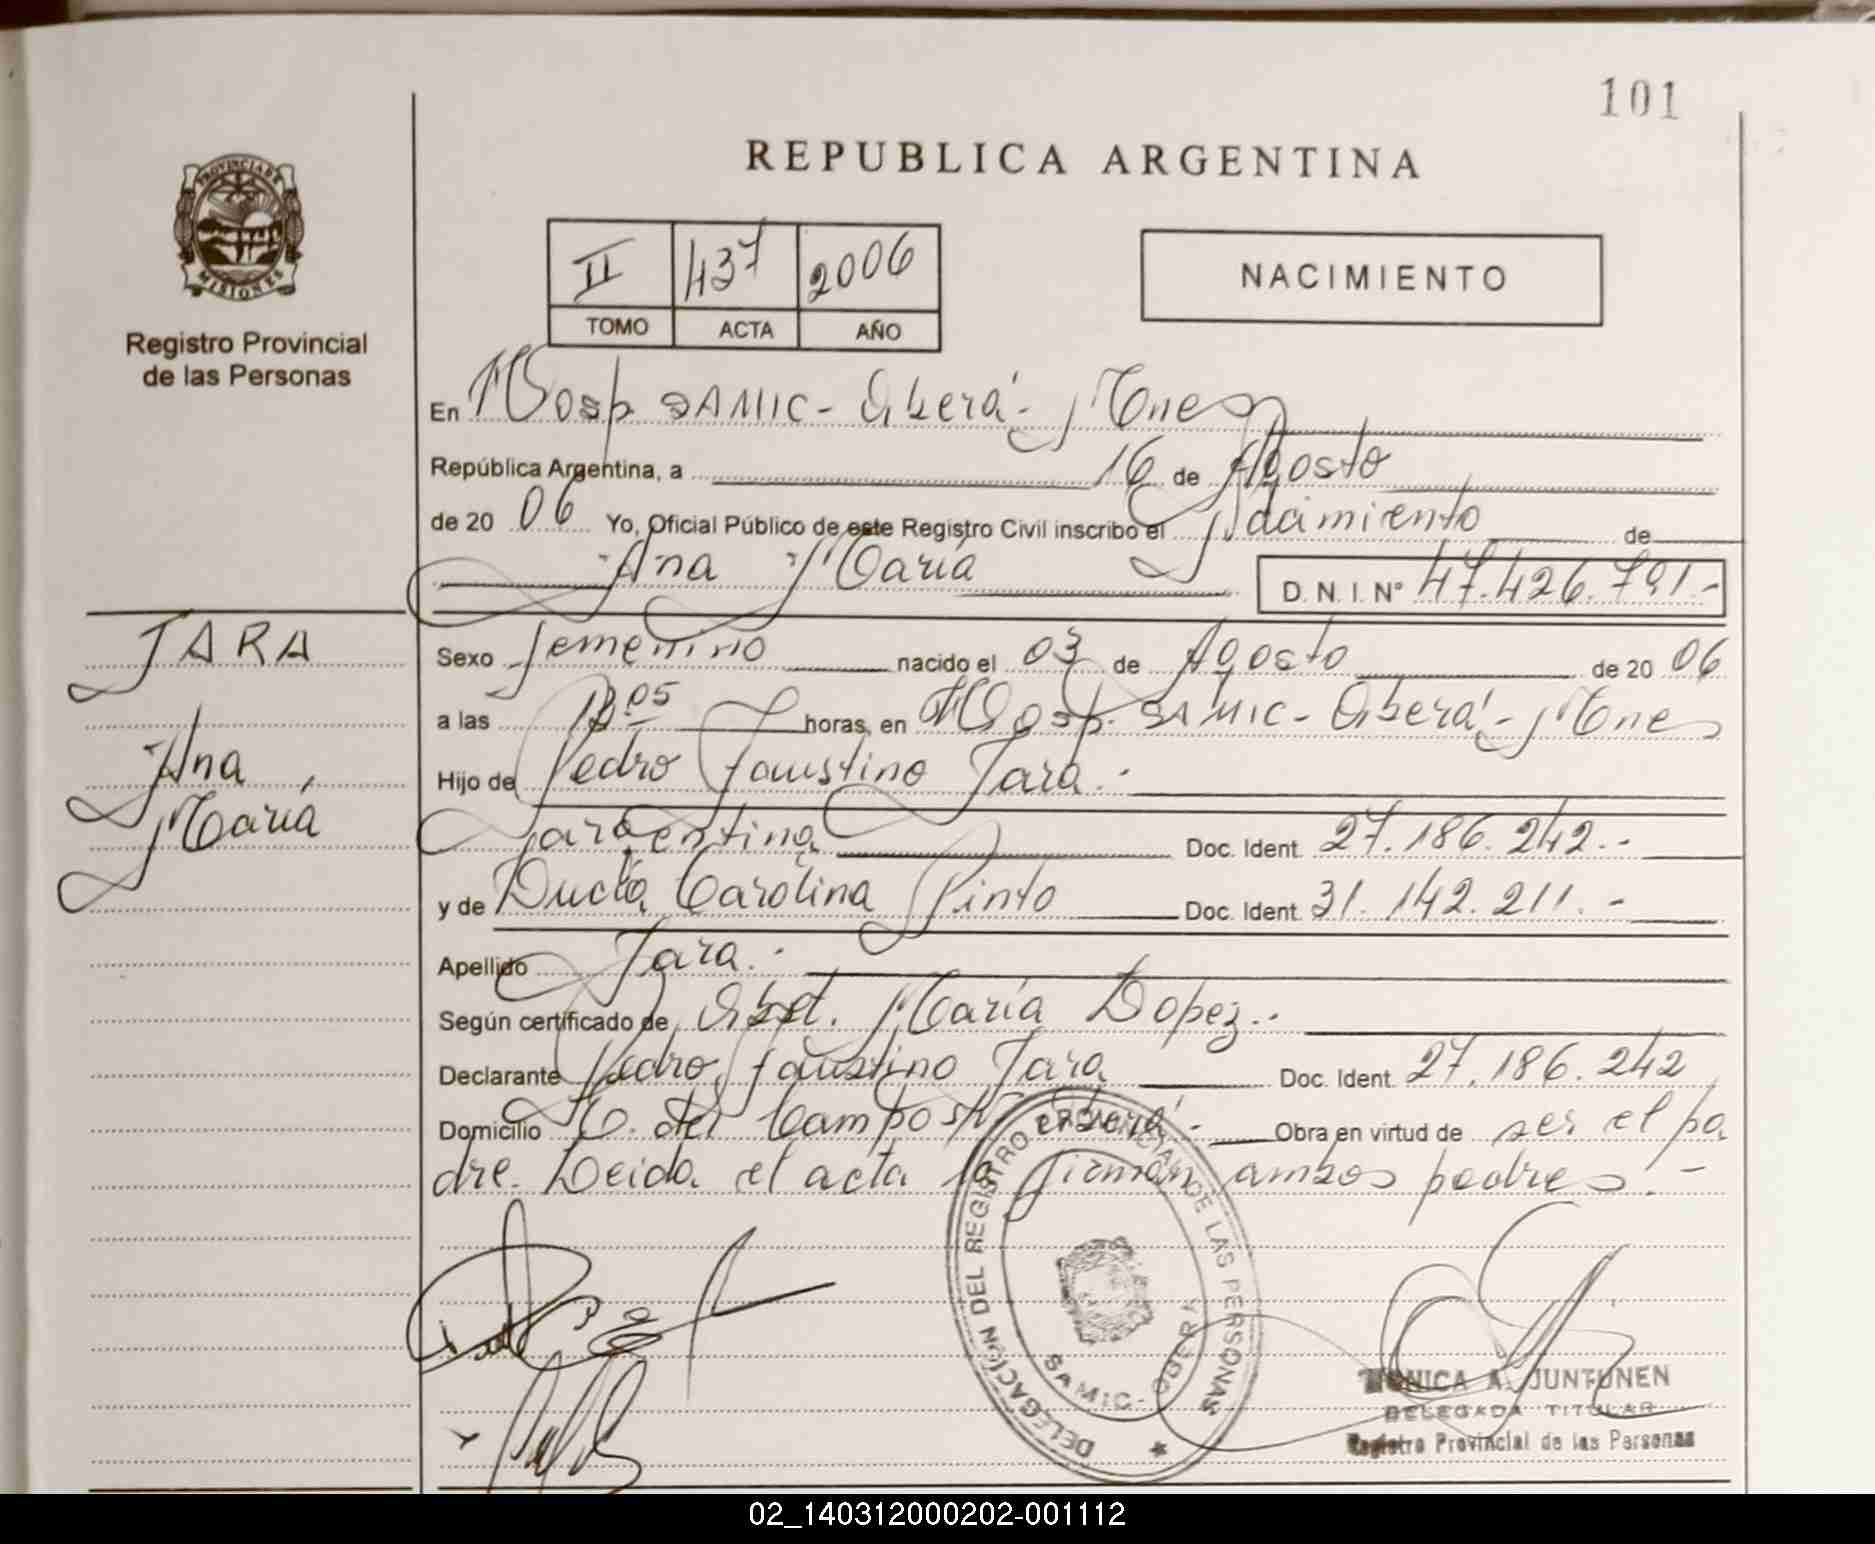 101
REPUBLICA ARGENTINA
PROVINCIA DE
MISIONES
Registro Provincial
de las Personas
II 437 2006
TOMO ACTA AÑO
NACIMIENTO
En Hosp SAMIC - Oberá - Mnes
República Argentina, a 16 de Agosto
de 20 06 Yo, Oficial Público de este Registro Civil inscribo el Nacimiento de
Ana María
D. N. I. N° 47.426.791.-
JARA
Ana
María
Sexo femenino nacido el 03 de Agosto de 20 06
a las 05 horas, en Hosp. SAMIC - Oberá - Mnes
Hijo de Pedro Faustino Jara.
argentina Doc. Ident. 27.186.242.-
y de Lucía Carolina Pinto Doc. Ident. 31.142.211.-
Apellido Jara.
Según certificado de Obst. María Lopez.
Declarante Pedro Faustino Jara Doc. Ident. 27.186.242
Domicilio C. del Oberá.- Obra en virtud de ser el pa
dre. Leida el acta la firman ambos padres.-
DELEGACIÓN DEL REGISTRO PROVINCIAL DE LAS PERSONAS
SAMIC - OBERA
MONICA A. JUNTUNEN
DELEGADA TITULAR
Registro Provincial de las Personas
02_140312000202-001112